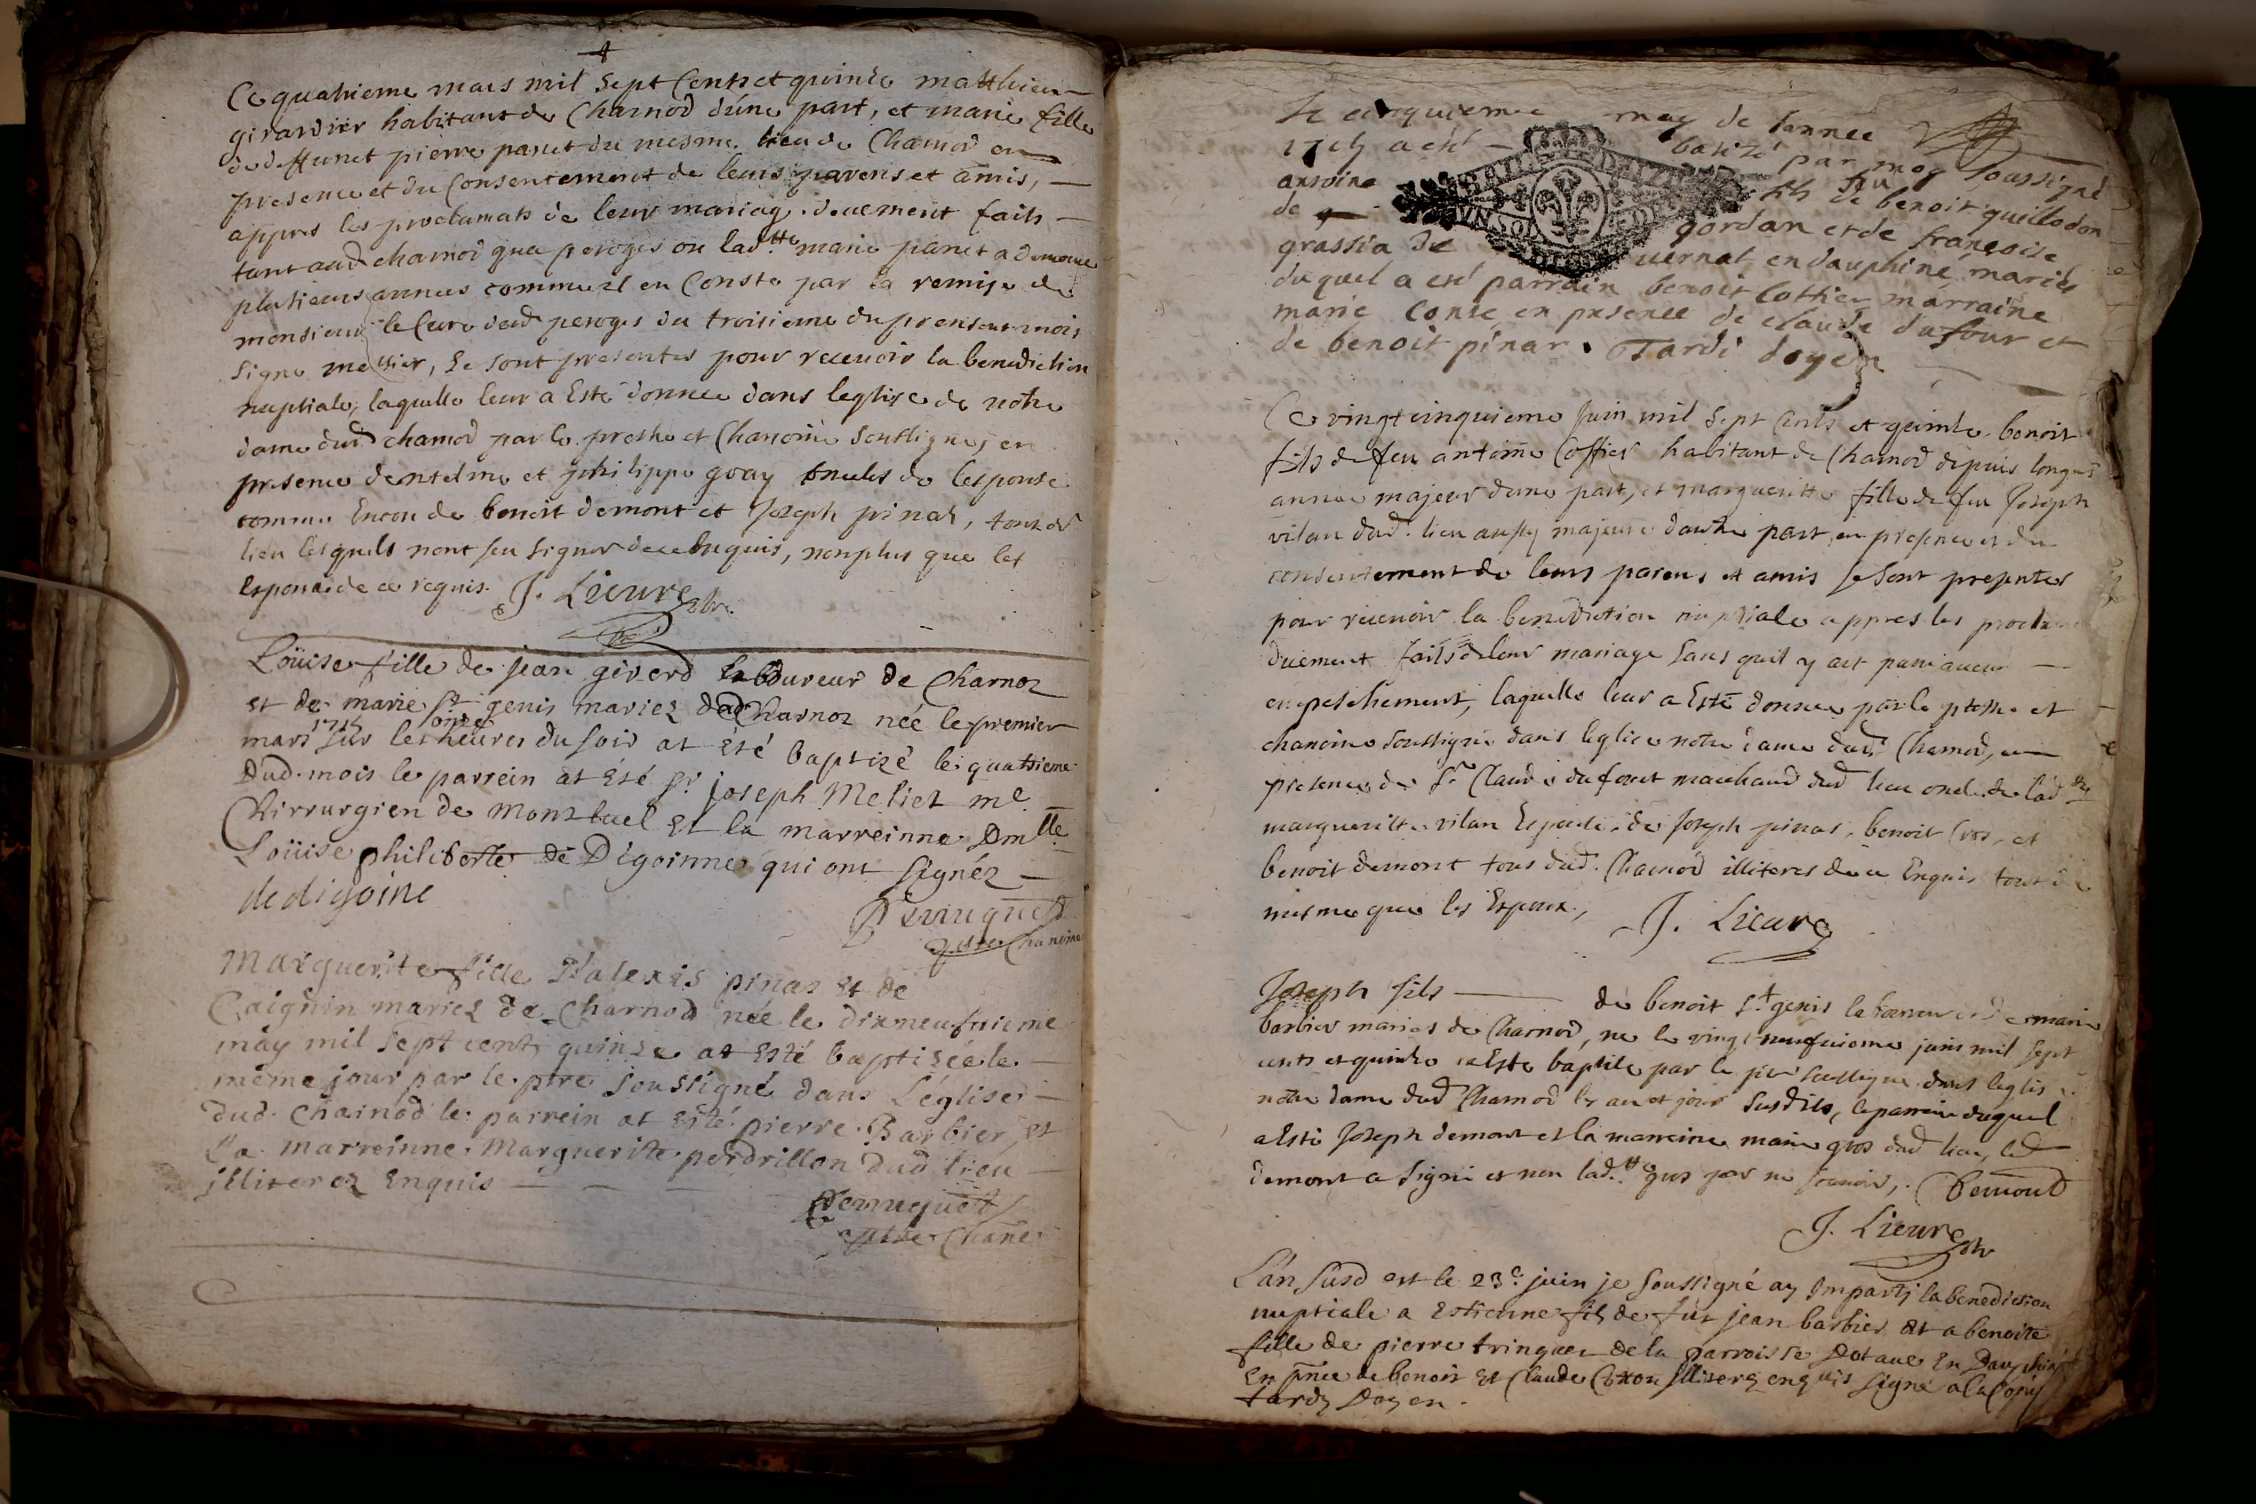 Ce quatrieme mars mil sept Cents et quinze matthieu
girardier habitant de Charnod d'une part, et marie fille
de deffunct pierre panet du mesme lieu de Charnod en
presence et du Consentement de leurs parens et amis,
appres les proclamats de leur mariage deuement faits
tant aud charnod qua peroges ou lad.tte marie panet a demeure
plusieurs annees comme il en Conste par la remise de
monsieur le Cure dud peroges du troisieme du present mois
signe messier, se sont presentes pour recevoir la benediction
nuptiale, laquelle leur a Esté donnee dans leglise de notre
dame dud charnod par le prestre et Chanoine soussigne, en
presence dentelme et philippe goay oncles de lespouse
comme Encor de benoit demont et Joseph pinar, tous du
lieu lesquels nont seu signer de ce Enquis, non plus que les
Espoux de ce requis. J. Lieure ptre.
Loüise fille de jean giverd laboureur de Charnoz
et de marie St genis mariez dud Charnoz née le premier
mars 1715 sur les onze heures du soir at été baptizé le quatrieme
dud. mois le parrein at été Sr. joseph Meliet me.
Chirrurgien de Montluel et la marreinne Dmlle.
Loüise philiberte de Digoinne qui ont signéz
de digoine
Pertuquet
ptre Chanoine
Marguerite fille D'alexis pinar et de
Caignin mariez de Charnod née le dixneufvieme
may mil sept cents quinze at esté baptizée le
même jour par le ptre soussigné dans L'églize
dud. Charnod le parrein at esté pierre Barbier, et
la marreinne Marguerite perdrillon dud lieu
illiterez Enquis
Pertuquet
ptre Chane.
Le cinquieme may de lannee
1715 a esté batizé par moy soussigné
antoine fils de benoit quillodon
de gordan et de françoise
grassia de vernal en dauphiné, mariés
duquel a esté parrain benoit Cottier marraine
marie Conte en presence de claude dufour et
de benoit pinar. Tardi doyen
Ce vingtcinquieme Juin mil sept Cents et quinze benoit
fils de feu antoine Cottier habitant de Charnod depuis longues
annees majeur d'une part, et margueritte fille de feu Joseph
vilan dud. lieu aussy majeure dautre part, en presence et du
consentement de leurs parens et amis se sont presentes
pour recevoir la benediction nuptiale appres les proclama
duement faits de leur mariage sans quil y ait paru aucun
empeschement, laquelle leur a Esté donnee par le ptre et
chanoine soussigné dans leglise notre dame dud. Charnod, en
presence de Sr. Claude dufour marchand dud lieu oncle de lad.tte
margueritte vilan Espouse, de Joseph pinar, benoit Cros, et
benoit demont tous dud. Charnod illiteres de ce Enquis tout de
mesme que les Espoux, J. Lieure
Joseph fils de benoit St genis laboureur et de marie
barbier mariés de Charnod, ne le vingtneufvieme juin mil sept
cents et quinze a Este baptise par le ptre soussigne dans leglise
notre dame dud Charnod les an et jour susdits, le parrein duquel
a esté Joseph demont et la marreine marie gros dud lieu, led
demont a signé et non lad.tte gros pour ne scavoir, Demont
J. Lieure ptr
L'an susd est le 23e. juin je soussigné ay imparty la benediction
nuptiale a Estienne fils de fut jean barbier et a benoite
fille de pierre tringuer de la parroisse Dotave En Dauphiné
En pnce de benoit et Claude illiterz enquis signe a la Copie
tardy Doyen.